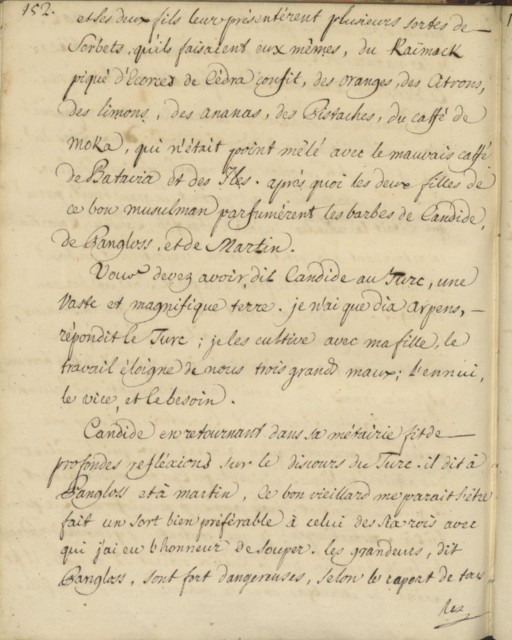 152.
et ses deux fils leur présentérent plusieurs sortes de
Sorbets, qu'ils faisaient eux mêmes, du Kaimack
piqué d'Ecorces de Cédra confit, des oranges, des Citrons,
des limons, des ananas, des Pistaches, du caffé de
Moka, qui n'était point mêlé avec le mauvais caffé
de Batavia et des Iles. après quoi les deux filles de
ce bon musulman parfumérent les barbes de Candide,
de Pangloss, et de Martin.
Vous devez avoir, dit Candide au Turc, une
vaste et magnifique terre. je n'ai que dix Arpens,
répondit le Turc ; je les cultive avec ma fille, le
travail éloigne de nous trois grands maux ; l'ennui,
le vice, et le besoin.
Candide en retournant dans sa métairie fit de
profondes refléxions sur le discours du Turc. il dit à
Pangloss et à Martin, ce bon vieillard me parait s'être
fait un sort bien préférable à celui des six rois avec
qui j'ai eu l'honneur de souper. les grandeurs, dit
Pangloss, sont fort dangereuses, selon le raport de tous
les